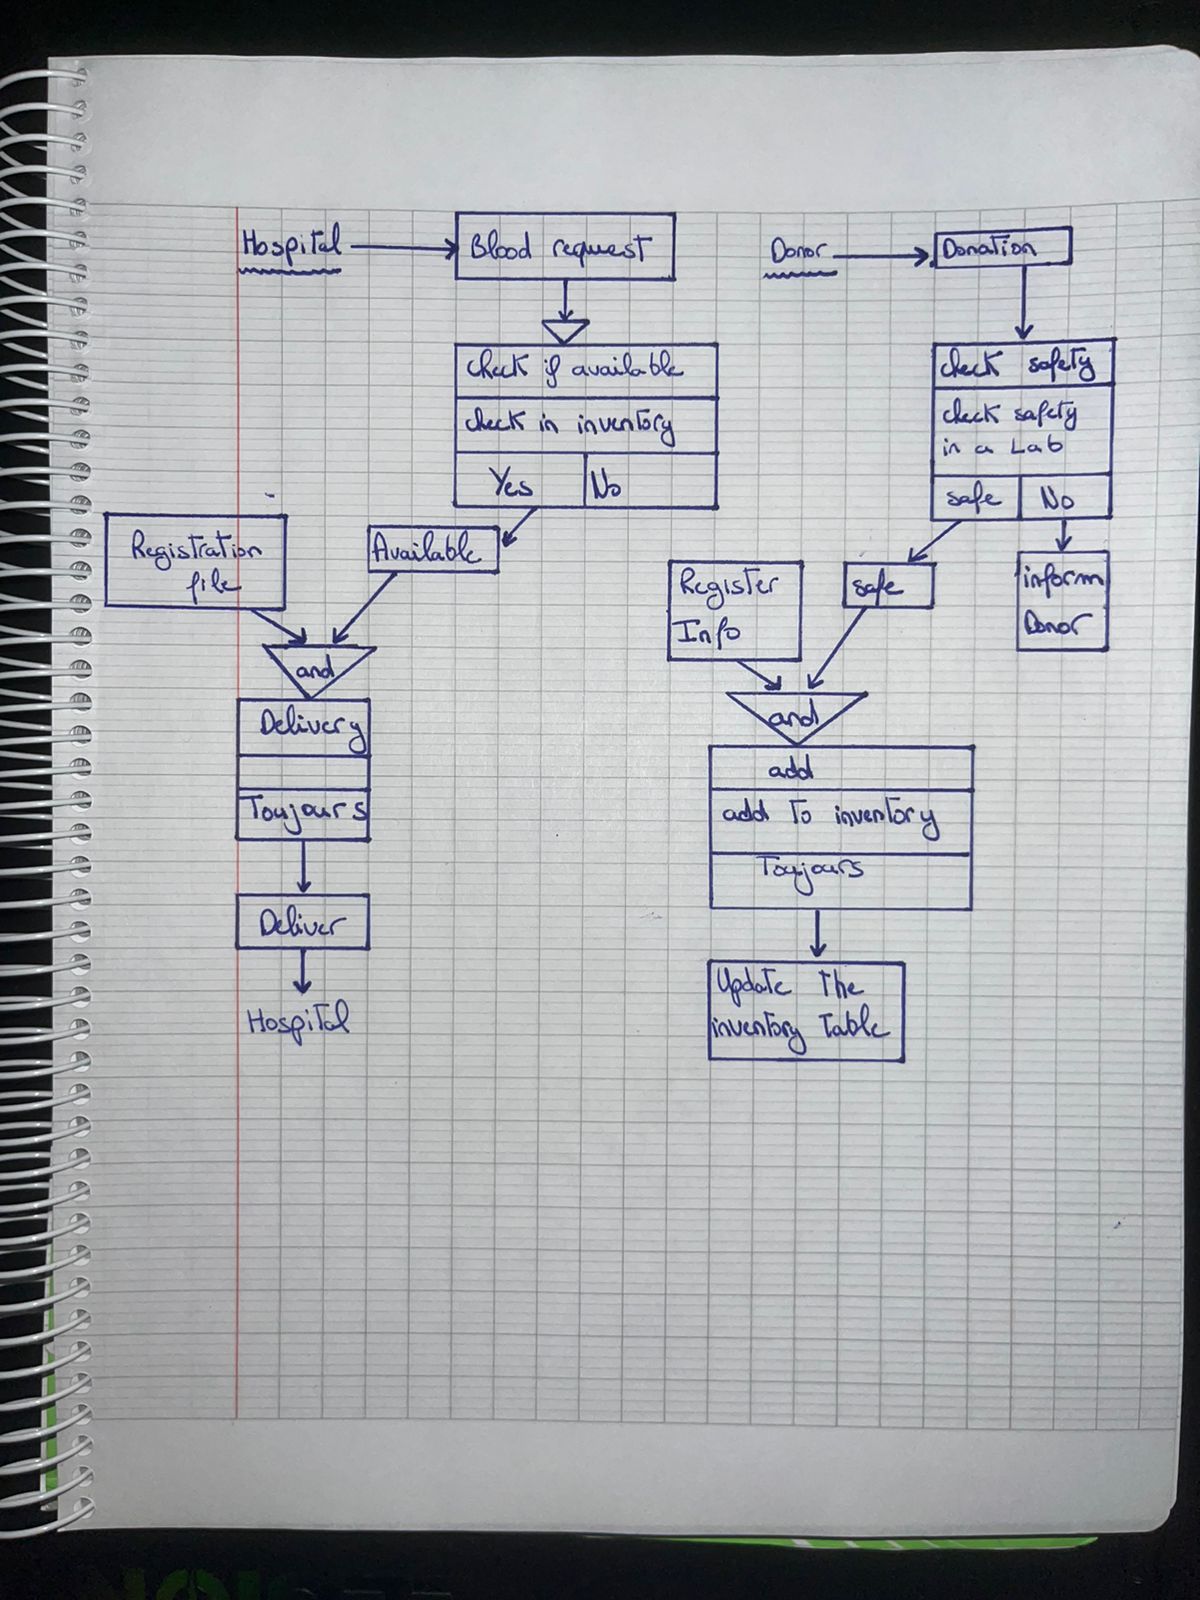 Hospital
Blood request
check if available
check in inventory
Yes
No
Registration
file
Available
and
Delivery
Toujours
Deliver
Hospital
Donor
Donation
check safety
check safety
in a Lab
safe
No
Register
Info
safe
inform
Donor
and
add
add to inventory
Toujours
Update the
inventory table